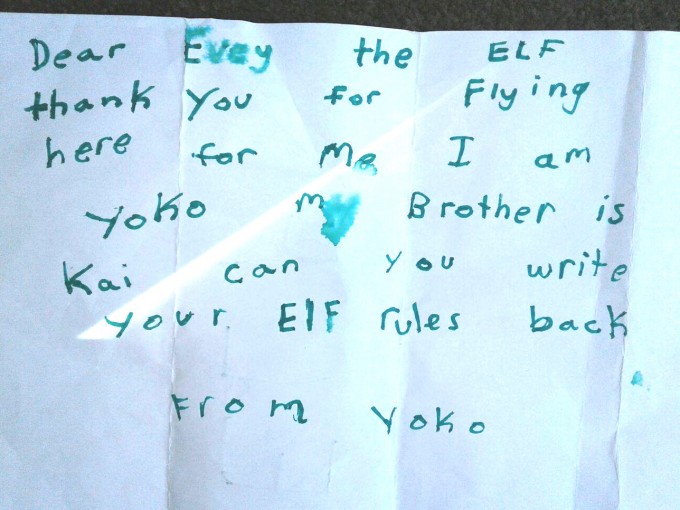 Dear Evey the ELF
thank you for Flying
here for Me I am
yoKo my Brother is
Kai can you write
your ElF rules back
From Yoko